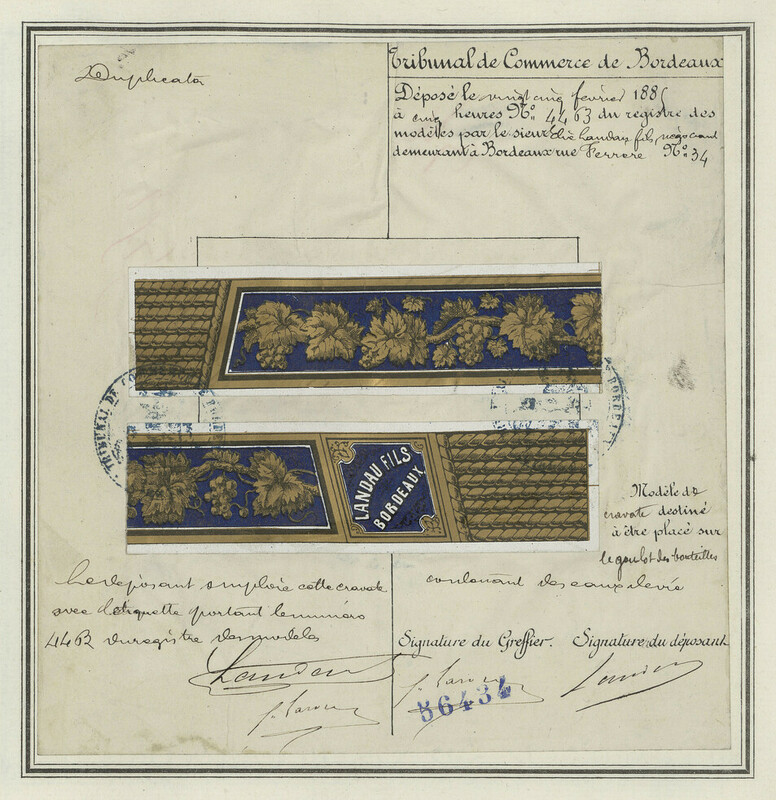 Duplicata
Tribunal de Commerce de Bordeaux
Déposé le vingt cinq février 188
à cinq heures No. 4463 du registre des
modèles par le sieur Elie Landau fils, négociant
demeurant à Bordeaux rue Ferrere No. 34
TRIBUNAL DE CO
BORDE
LANDAU FILS
BORDEAUX
Modèle de
cravate destiné
à être placé sur
le goulot des bouteilles
contenant des eaux de vie
Le déposant emploie cette cravate
avec l'étiquette portant le numéro
4463 du registre des modèles
Signature du Greffier. Signature du déposant
Landau
Landau
56434